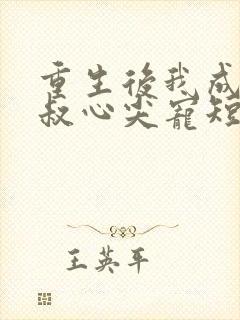 重生後我成
叔心尖寵短
王英平